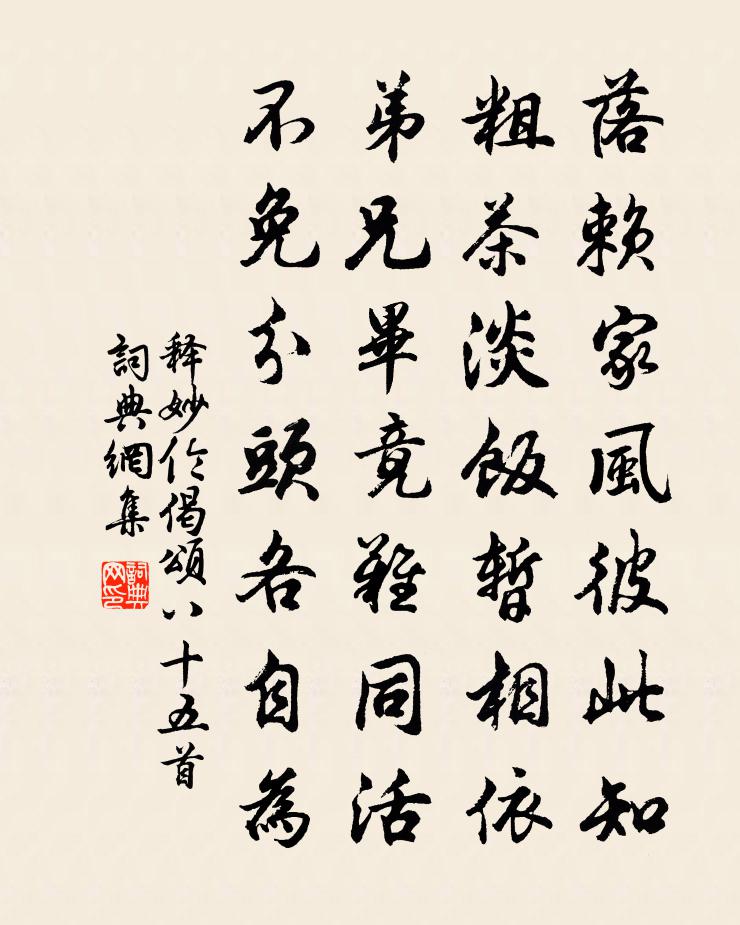 落賴家風彼此知
粗茶淡飯暫相依
弟兄畢竟難同活
不免分頭各自為
释妙伦偈頌八十五首
詞典網集
詞典
网印